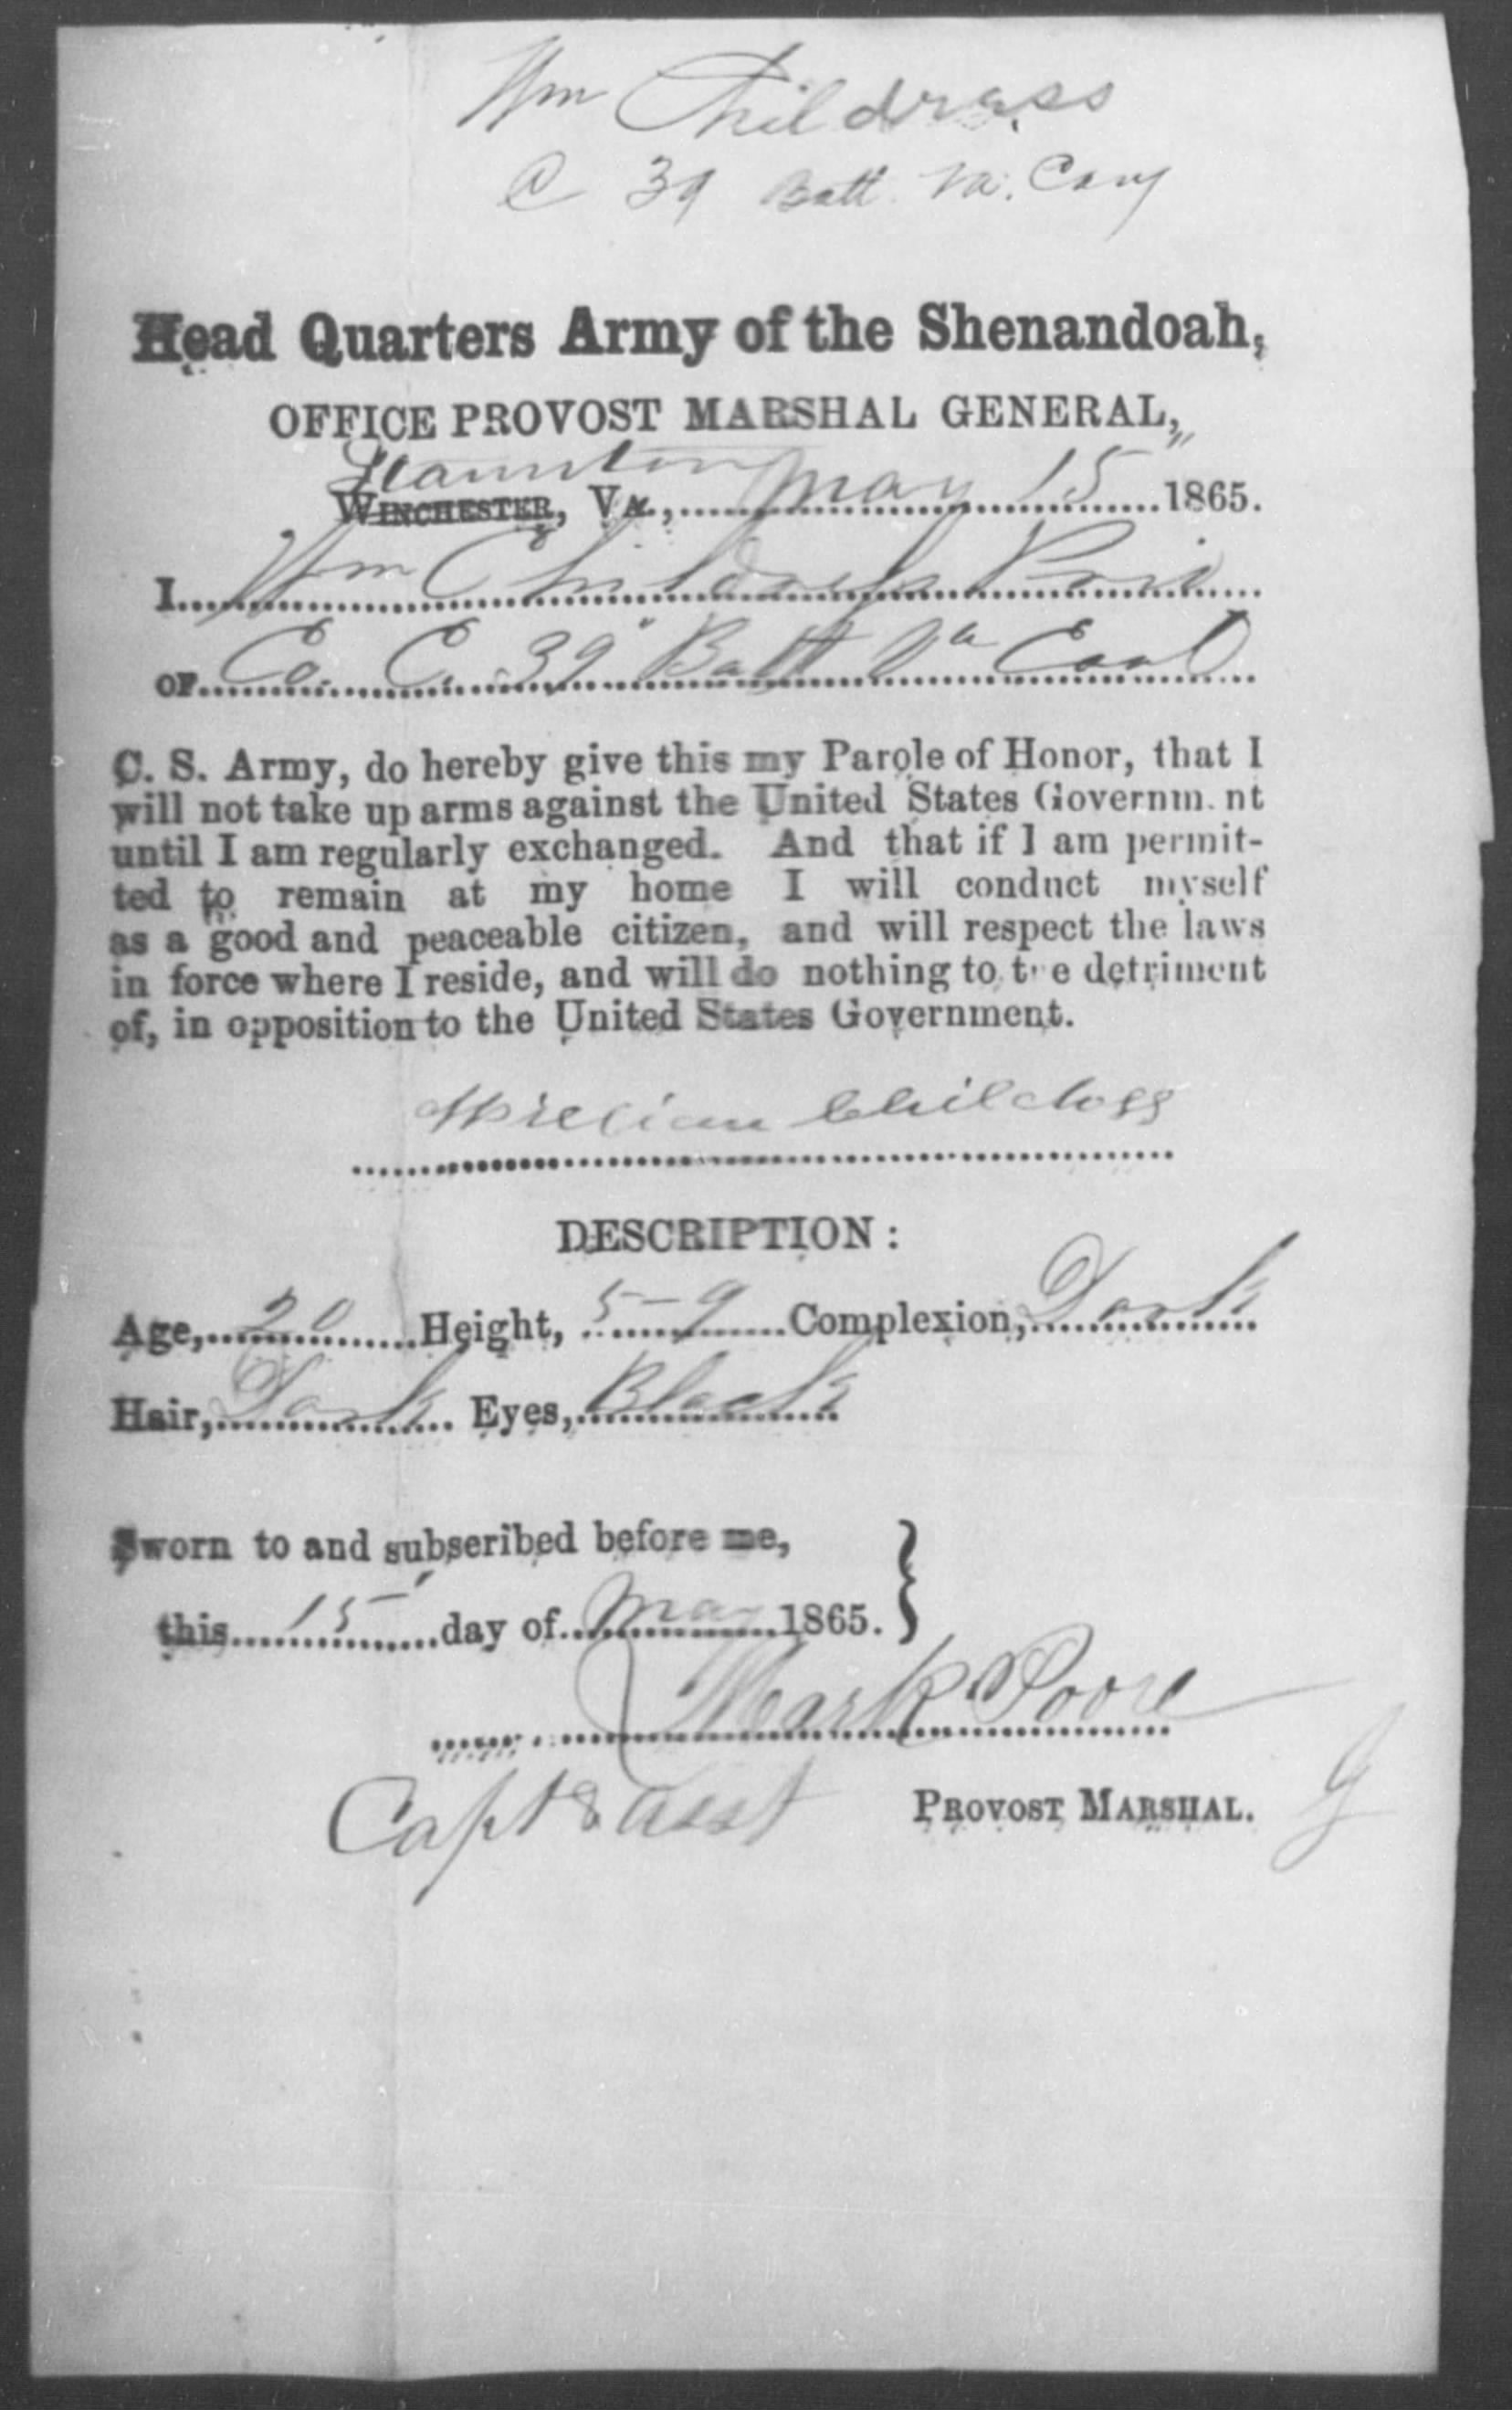 Wm Childrass
C 39 Batt. Va. Cavy
Head Quarters Army of the Shenandoah,
OFFICE PROVOST MARSHAL GENERAL,
Staunton
WINCHESTER, VA., May 15 1865.
I Wm Childress Priv
OF Co. C. 39" Batt Va Cavl
C. S. Army, do hereby give this my Parole of Honor, that I
will not take up arms against the United States Governm.nt
until I am regularly exchanged. And that if I am permit-
ted to remain at my home I will conduct myself
as a good and peaceable citizen, and will respect the laws
in force where I reside, and will do nothing to t e detriment
of, in opposition to the United States Government.
William Childress
DESCRIPTION:
Age, 20 Height, 5-9 Complexion, Dark
Hair, Dark Eyes, Black
Sworn to and subseribed before me,
this 15 day of May 1865.
Mark Poore
Capt & Asst PROVOST MARSHAL. G